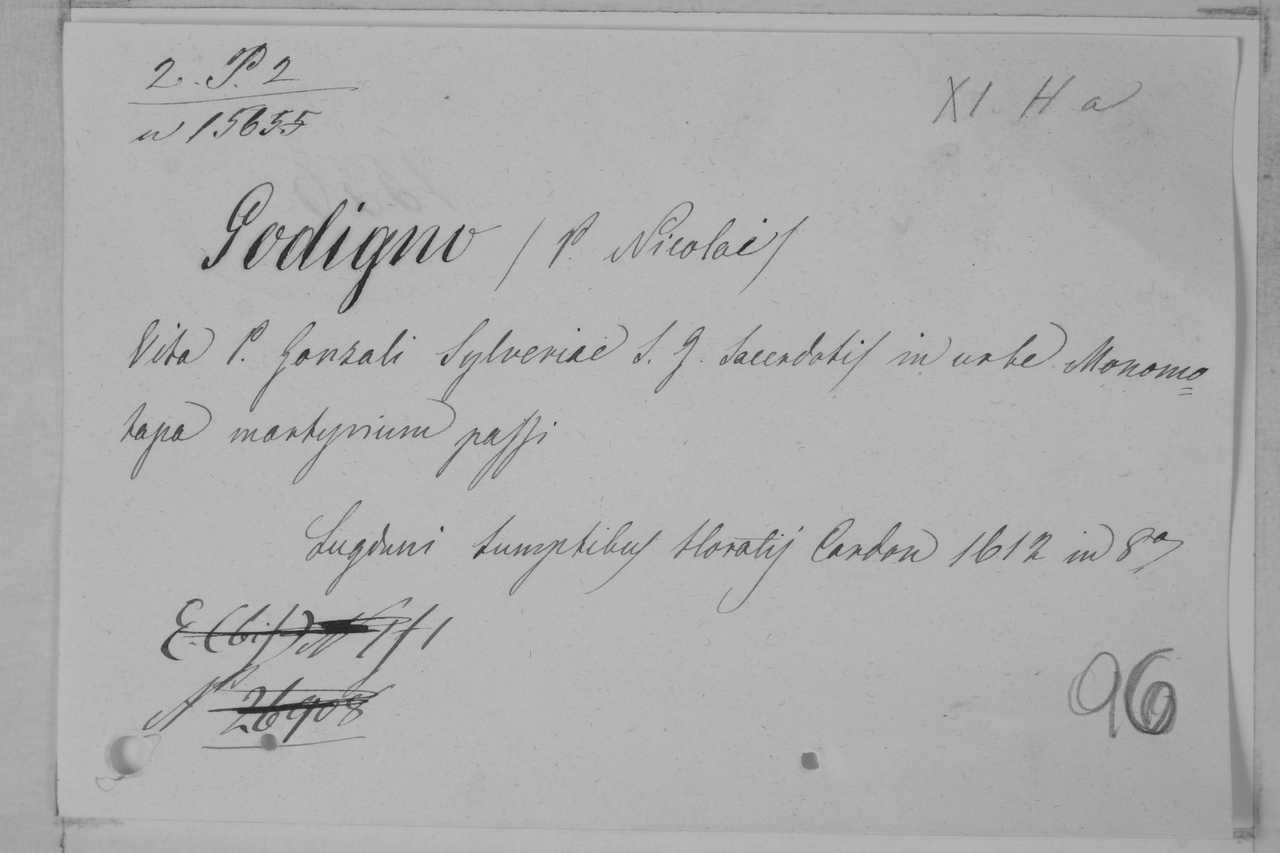 2. P. 2
n 15655
XI. H a
Godigno (P. Nicolai)
Vita P. Gonzali Sylveriae S. J. Sacerdotis in urbe Monomo=
tapa martyrium passi
Lugduni sumptibus Horatij Cardon 1612 in 8º
E. (bis)
Nº 26908
96